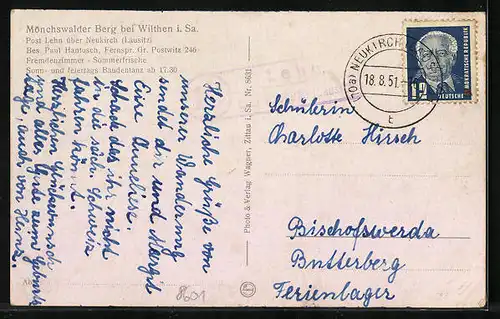 Mönchswalder Berg bei Wilthen i. Sa.
Post Lehn über Neukirch (Lausitz)
Bes. Paul Hantusch, Fernspr. Gr. Postwitz 246
Fremdenzimmer - Sommerfrische
Sonn- und feiertags Bandentanz ab 17.30
Herzliche Grüße von
unsrer Wanderung
sendet dir und Margot
Eure Anneliese.
Schad das ihr nicht
in die säch. Schweiz
fahren könnt.
Herzlichen Glückwunsch
und alles Gute zum Geburts
tag, auch von Hans.
Photo & Verlag Wagner, Zittau i. Sa. Nr. 8631
Lehn
(10a) NEUKIRCH
18.8.51
t
12
DEUTSCHE
DEMOKRATISCHE REPUBLIK
Schülerin
Charlotte Hirsch
Bischofswerda
Butterberg
Ferienlager
8601